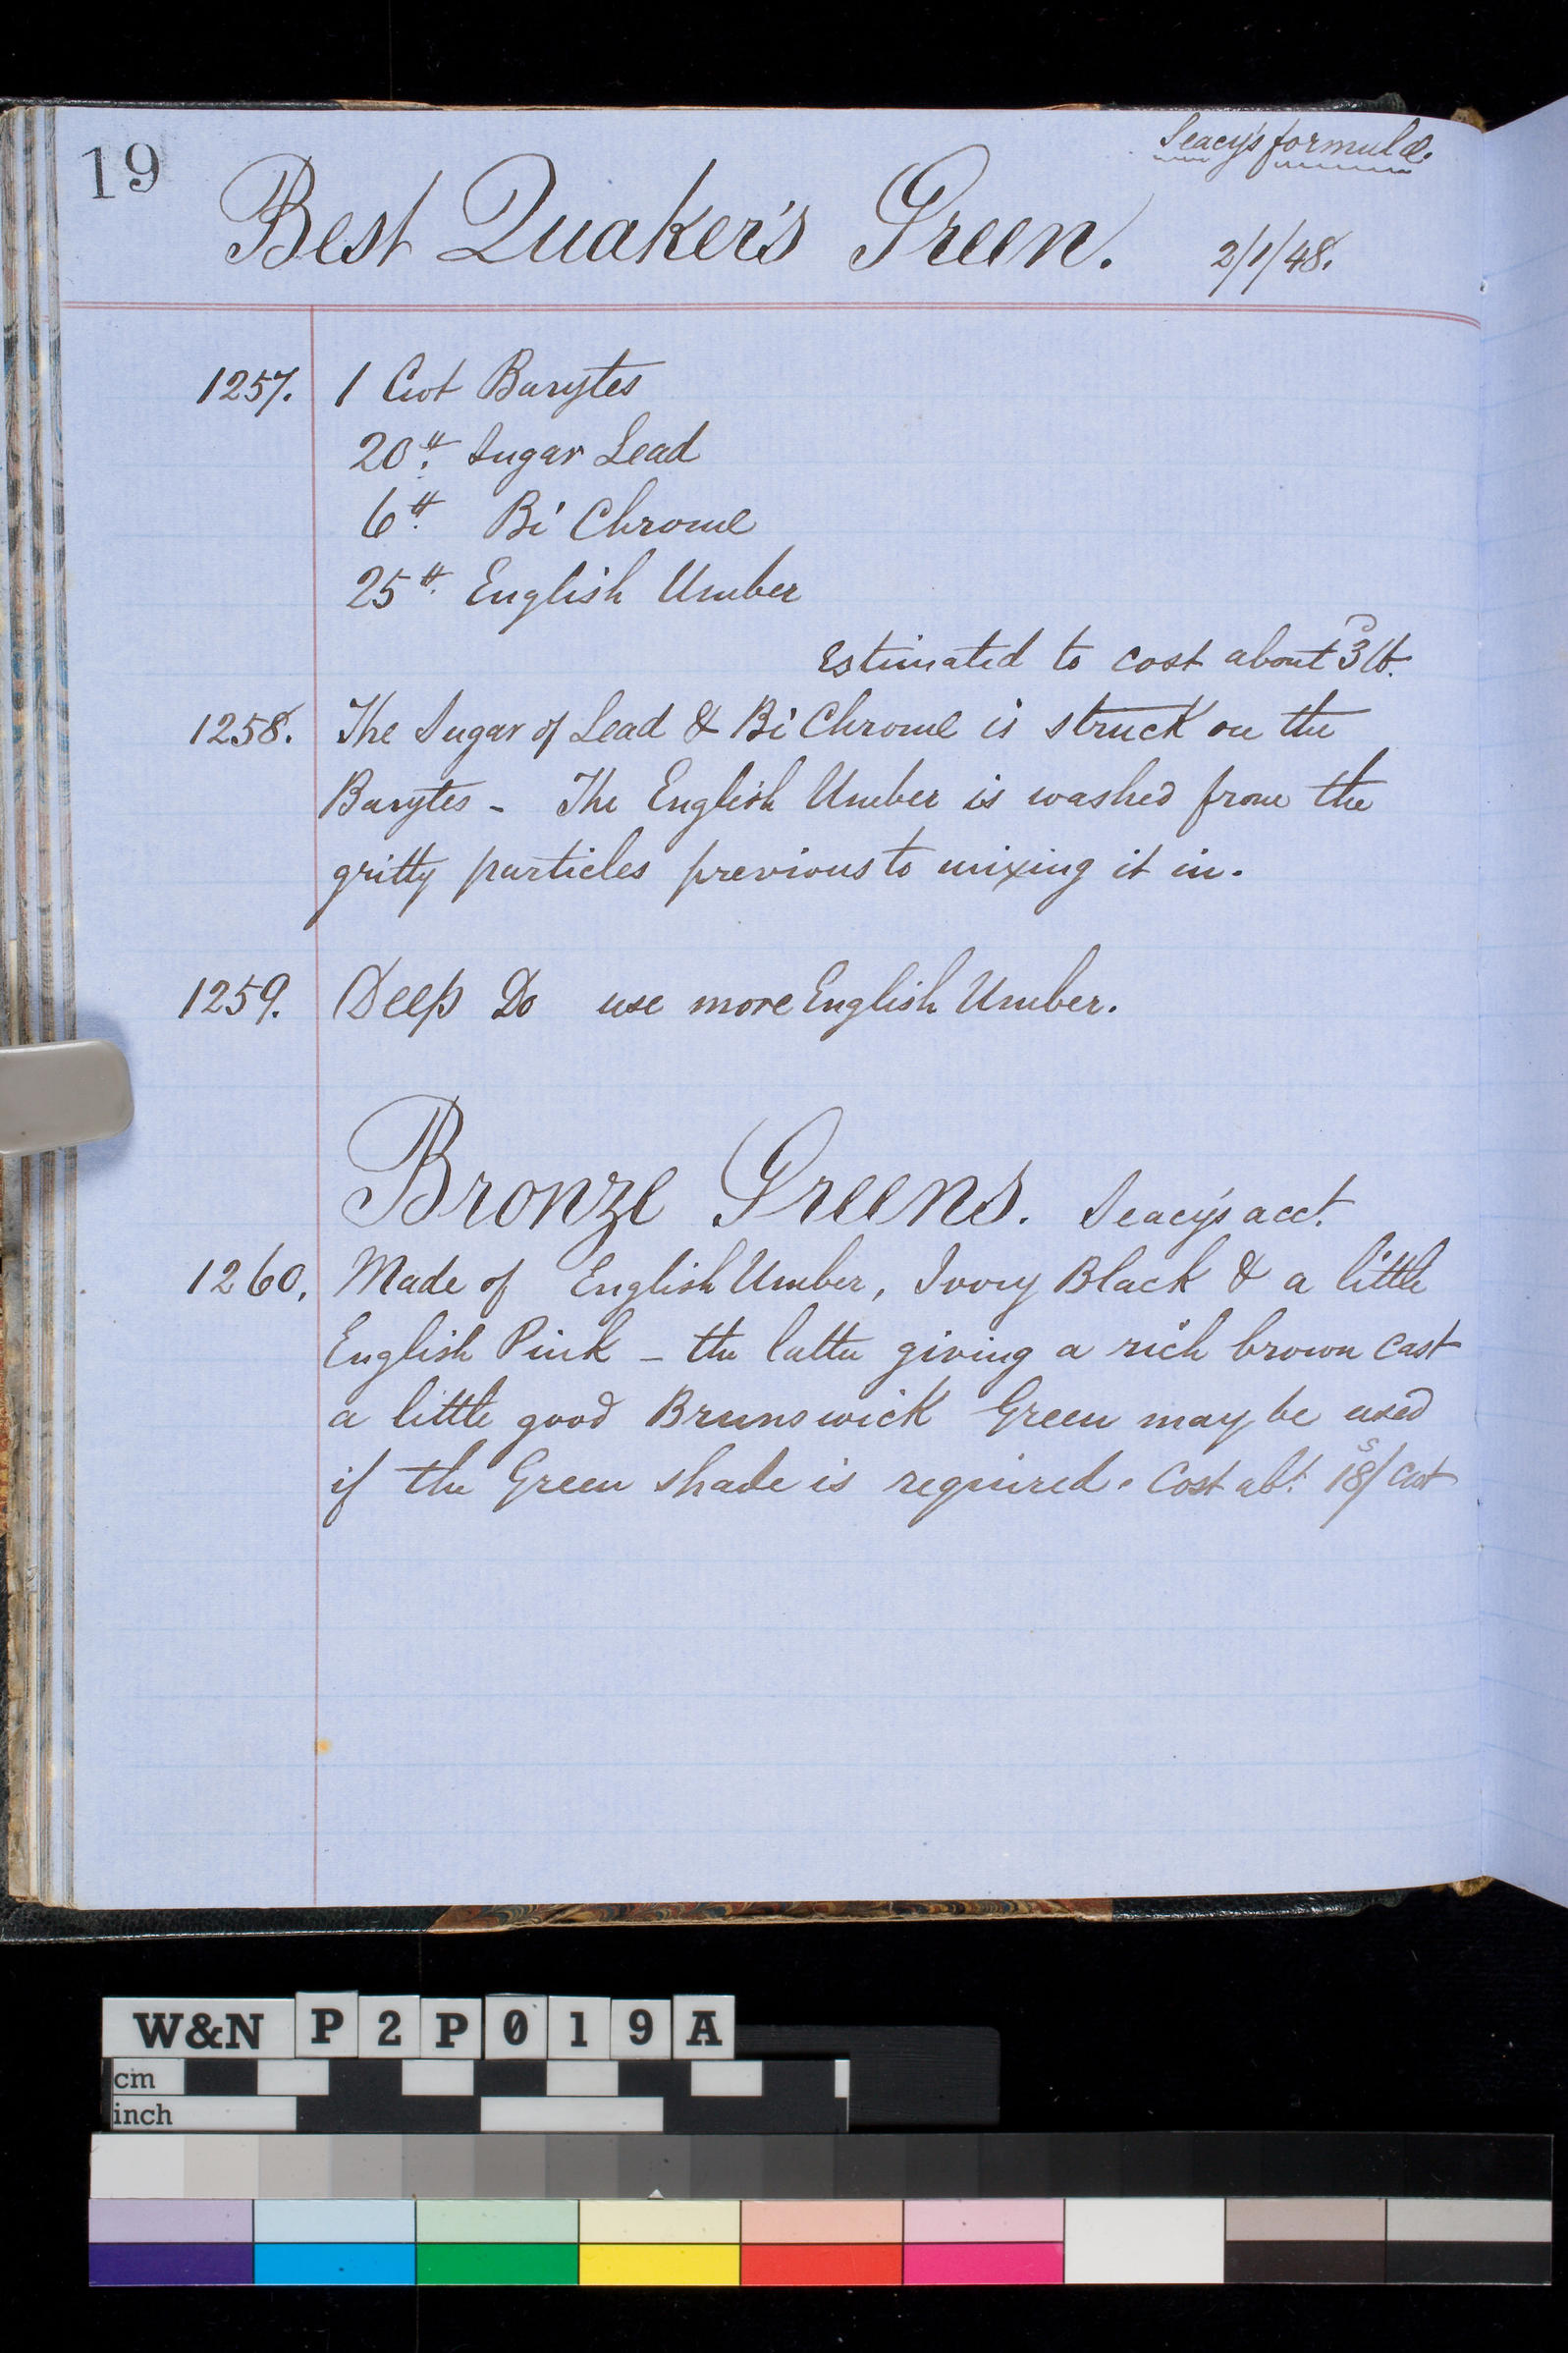 19
Seacy's formulæ.
Best Quaker's Green. 2/1/48.
1257. 1 Cwt Barytes
20 ℔ Sugar Lead
6 ℔ Bi Chrome
25 ℔ English Umber
Estimated to cost about 3 lb.
1258. The Sugar of Lead & Bi Chrome is struck on the
Barytes - The English Umber is washed from the
gritty particles previous to mixing it in.
1259. Deep Do use more English Umber.
Bronze Greens. Seacy's acct.
1260. Made of English Umber, Ivory Black & a little
English Pink - the latter giving a rich brown cast
a little good Brunswick Green may be used
if the Green shade is required. Cost abt. 18s/ Cwt
W&N P2P019A
cm
inch